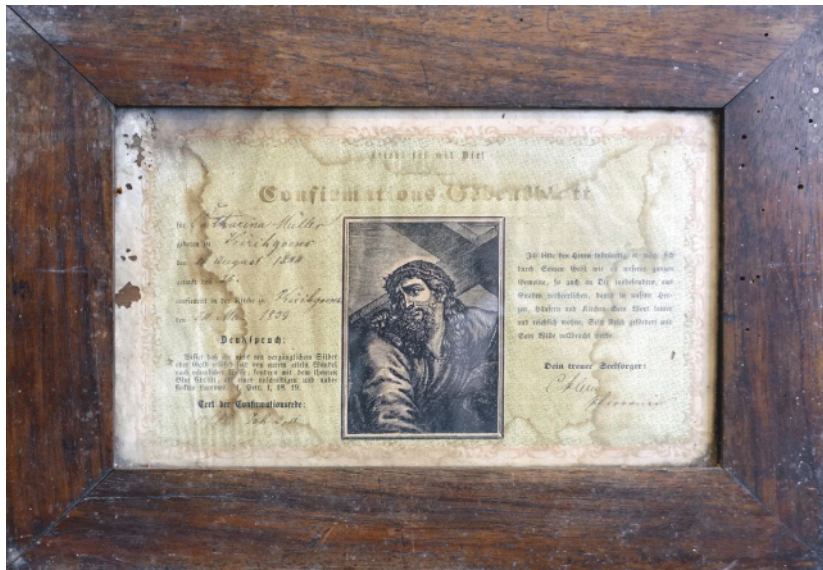 Friede sei mit Dir!
Confirmations-Gedenkblatt
für Catharina Müller
geboren in Kirchgoens
den August
getauft den 26.
confirmirt in der Kirche zu Kirchgoens
den Mai
Denkspruch:
Wisset daß ihr nicht mit vergänglichem Silber
oder Gold erlöset seid von eurem eiteln Wandel
nach väterlicher Weise; sondern mit dem theuren
Blut Christi, als eines unschuldigen und unbe-
fleckten Lammes. 1. Petr. 1, 18. 19.
Text der Confirmationsrede:
Ich bitte den Herrn inbrünstig, er wolle sich
durch Seinen Geist wie in unserer ganzen
Gemeine, so auch in Dir insbesondere, aus
Gnaden verherrlichen, damit in unsern Her-
zen, Häusern und Kirchen Sein Wort immer
und reichlich wohne, Sein Reich gefördert und
Sein Wille vollbracht werde.
Dein treuer Seelsorger: